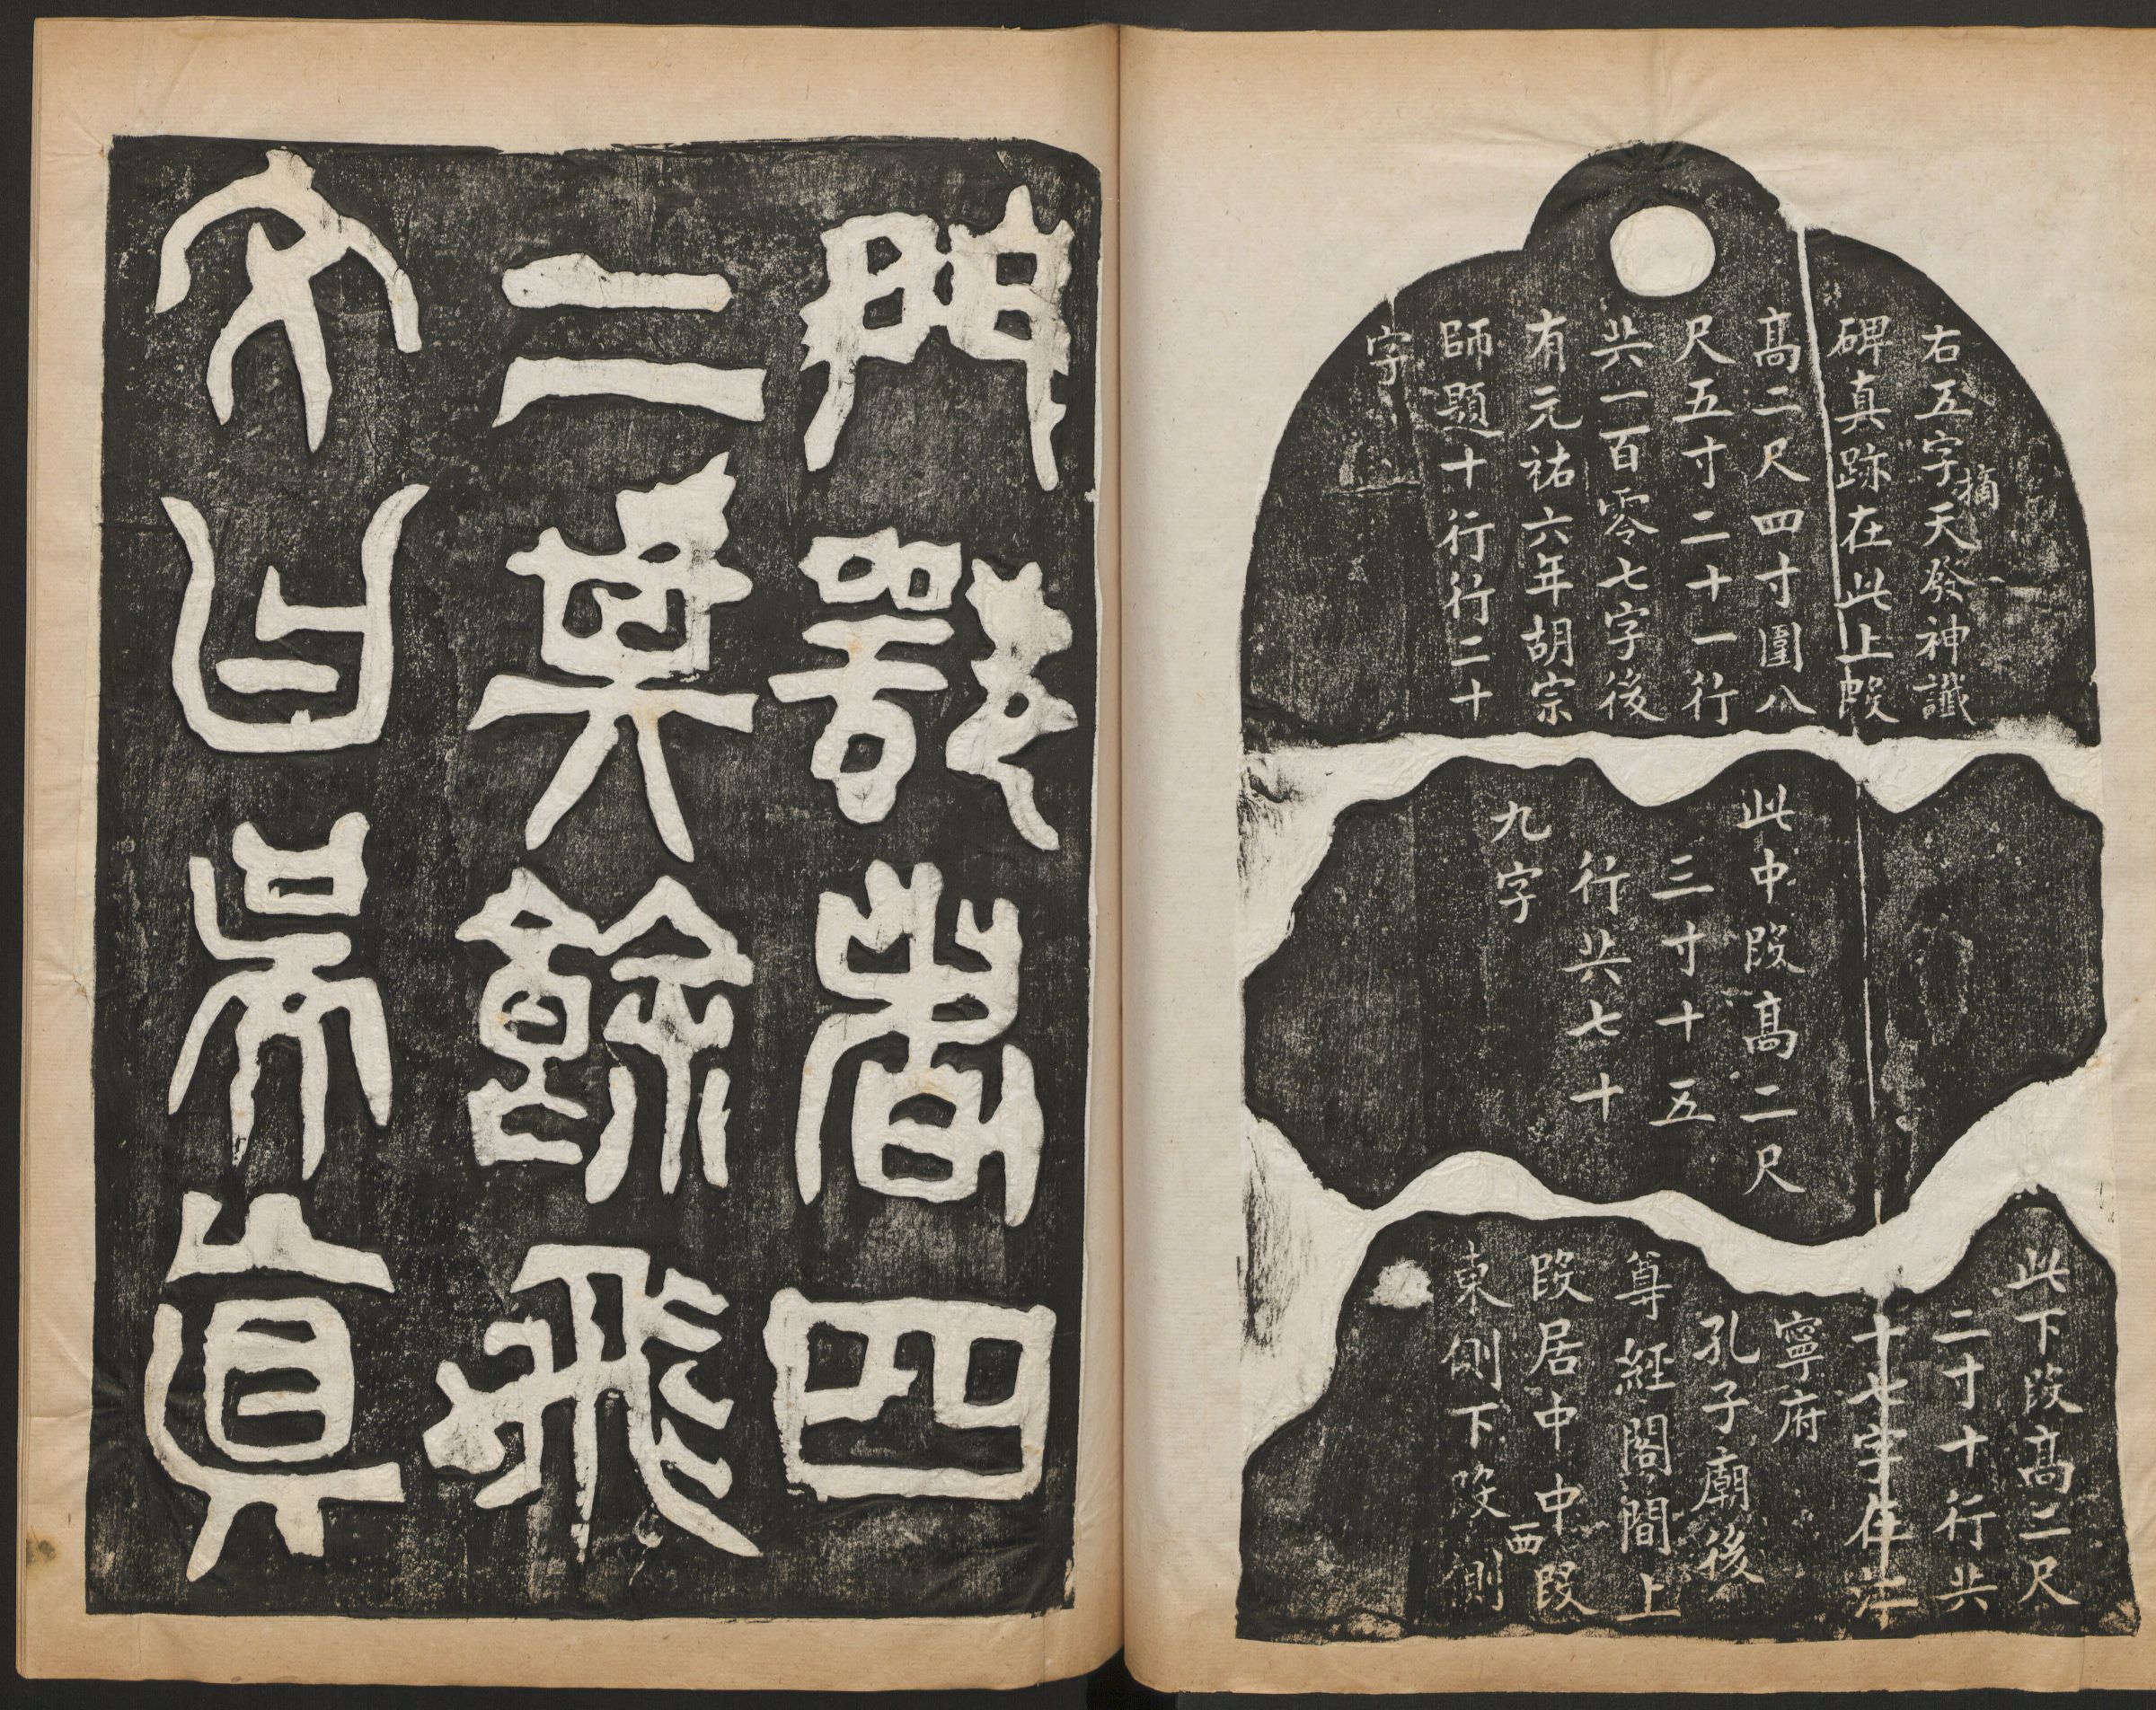 右五字摘天發神讖
碑真跡在此上段
高二尺四寸圍八
尺五寸二十一行
共一百零七字後
有元祐六年胡宗
師題十行行二十
字
此中段高二尺
三寸十五
行共七十
九字
此下段高二尺
二寸十行共
十七字在江
寧府
孔子廟後
尊經閣間上
段居中中段
東側下段西側
門戰四
二餘飛
文曰吳真